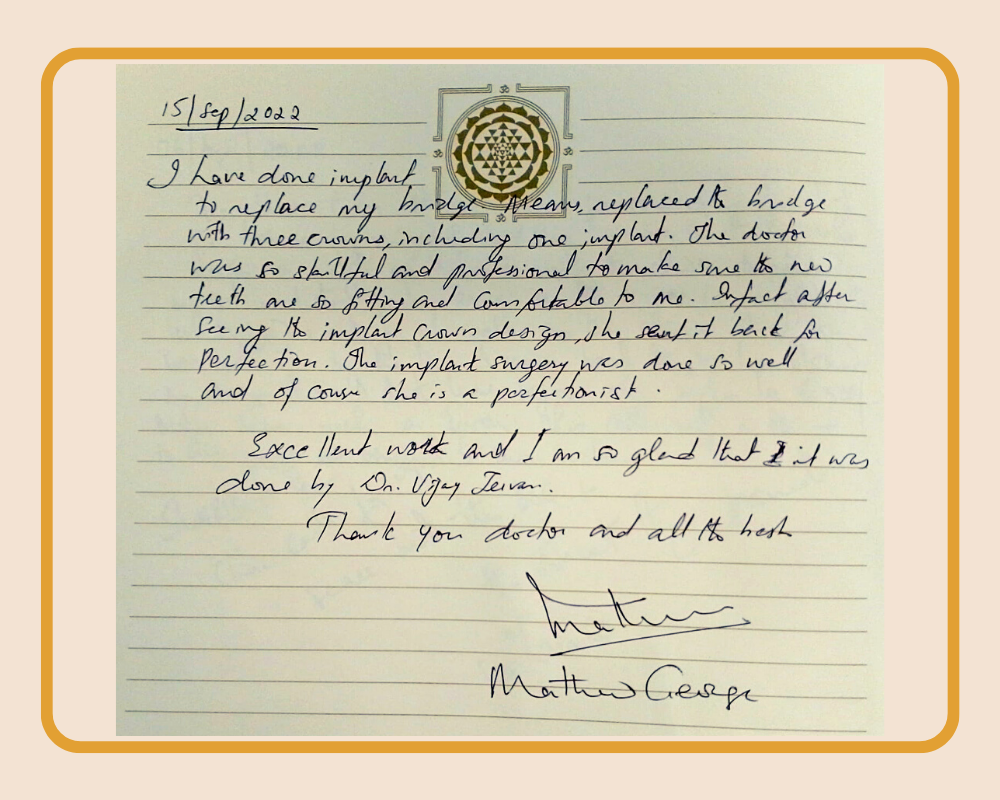 15/Sep/2022
I have done implant
to replace my bridge Means, replaced the bridge
with three crowns, including one implant. The doctor
was so skillful and professional to make sure the new
teeth are so fitting and comfortable to me. Infact after
seeing the implant crown design, she sent it back for
perfection. The implant surgery was done so well
and of course she is a perfectionist.
Excellent work and I am so glad that it was
done by Dr. Vijay Jeevan.
Thank you doctor and all the best
Mathew
Mathew George